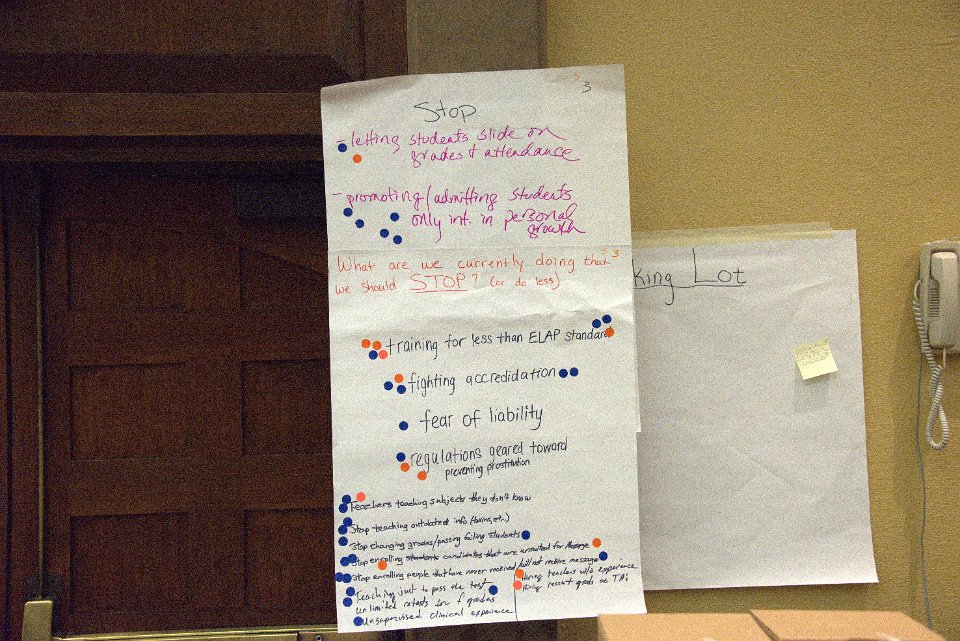 3
Stop
- letting students slide on
grades & attendance
- promoting/admitting students
only int. in personal
growth
3
What are we currently doing that
we should STOP? (or do less)
training for less than ELAP standard
fighting accredidation
fear of liability
regulations geared toward
preventing prostitution
Teachers teaching subjects they don't know
Stop teaching outdated info
Stop changing grades/passing failing students
Stop enrolling students candidates that are unsuited for Massage
Stop enrolling people that have never received /will not receive message
Teaching just to pass the test
unlimited retests for f grades
Unsupervised clinical experience
Hiring teachers w/o experience
Hiring recent grads as TA's
king Lot